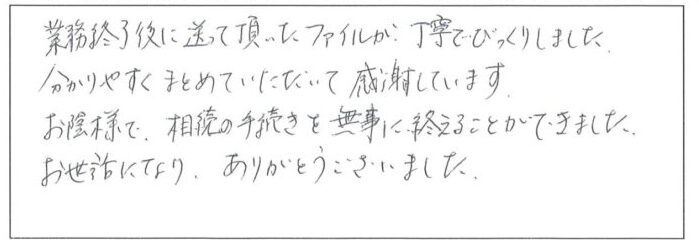 業務終了後に送って頂いたファイルが、丁寧でびっくりしました。
分かりやすくまとめていただいて感謝しています。
お陰様で、相続の手続きを無事に終えることができました。
お世話になり、ありがとうございました。